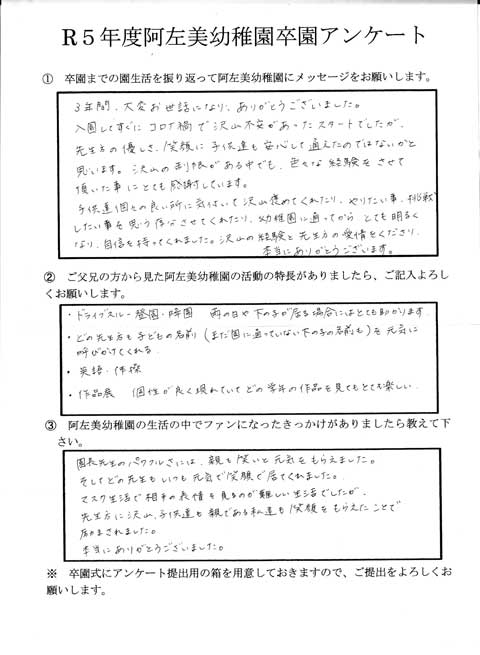 R５年度阿左美幼稚園卒園アンケート
① 卒園までの園生活を振り返って阿左美幼稚園にメッセージをお願いします。
３年間、大変お世話になり、ありがとうございました。
入園してすぐにコロナ禍で沢山不安があったスタートでしたが、
先生方の優しさ、笑顔に子供達も安心して通えたのではないかと
思います。沢山の制限がある中でも、色々な経験をさせて
頂いた事にとても感謝しています。
子供達個々の良い所に気付いて沢山褒めてくれたり、やりたい事、挑戦
したい事を思う存分させてくれたり、幼稚園に通ってからとても明るく
なり、自信を持ってくれました。沢山の経験と先生方の愛情をくださり、
本当にありがとうございます。
② ご父兄の方から見た阿左美幼稚園の活動の特長がありましたら、ご記入よろし
くお願いします。
・ドライブスルー登園・降園 雨の日や下の子が居る場合にはとても助かります。
・どの先生方も子どもの名前（まだ園に通っていない下の子の名前も）を元気に
呼びかけてくれる
・英語・体操
・作品展 個性が良く現れていてどの学年の作品を見てもとても楽しい
③ 阿左美幼稚園の生活の中でファンになったきっかけがありましたら教えて下
さい。
園長先生のパワフルさには、親も笑いと元気をもらえました。
そしてどの先生もいつも元気で笑顔で居てくれました。
マスク生活で相手の表情を見るのが難しい生活でしたが、
先生方に沢山、子供達も親である私達も笑顔をもらえたことで
励まされました。
本当にありがとうございました。
※ 卒園式にアンケート提出用の箱を用意しておきますので、ご提出をよろしくお
願いします。